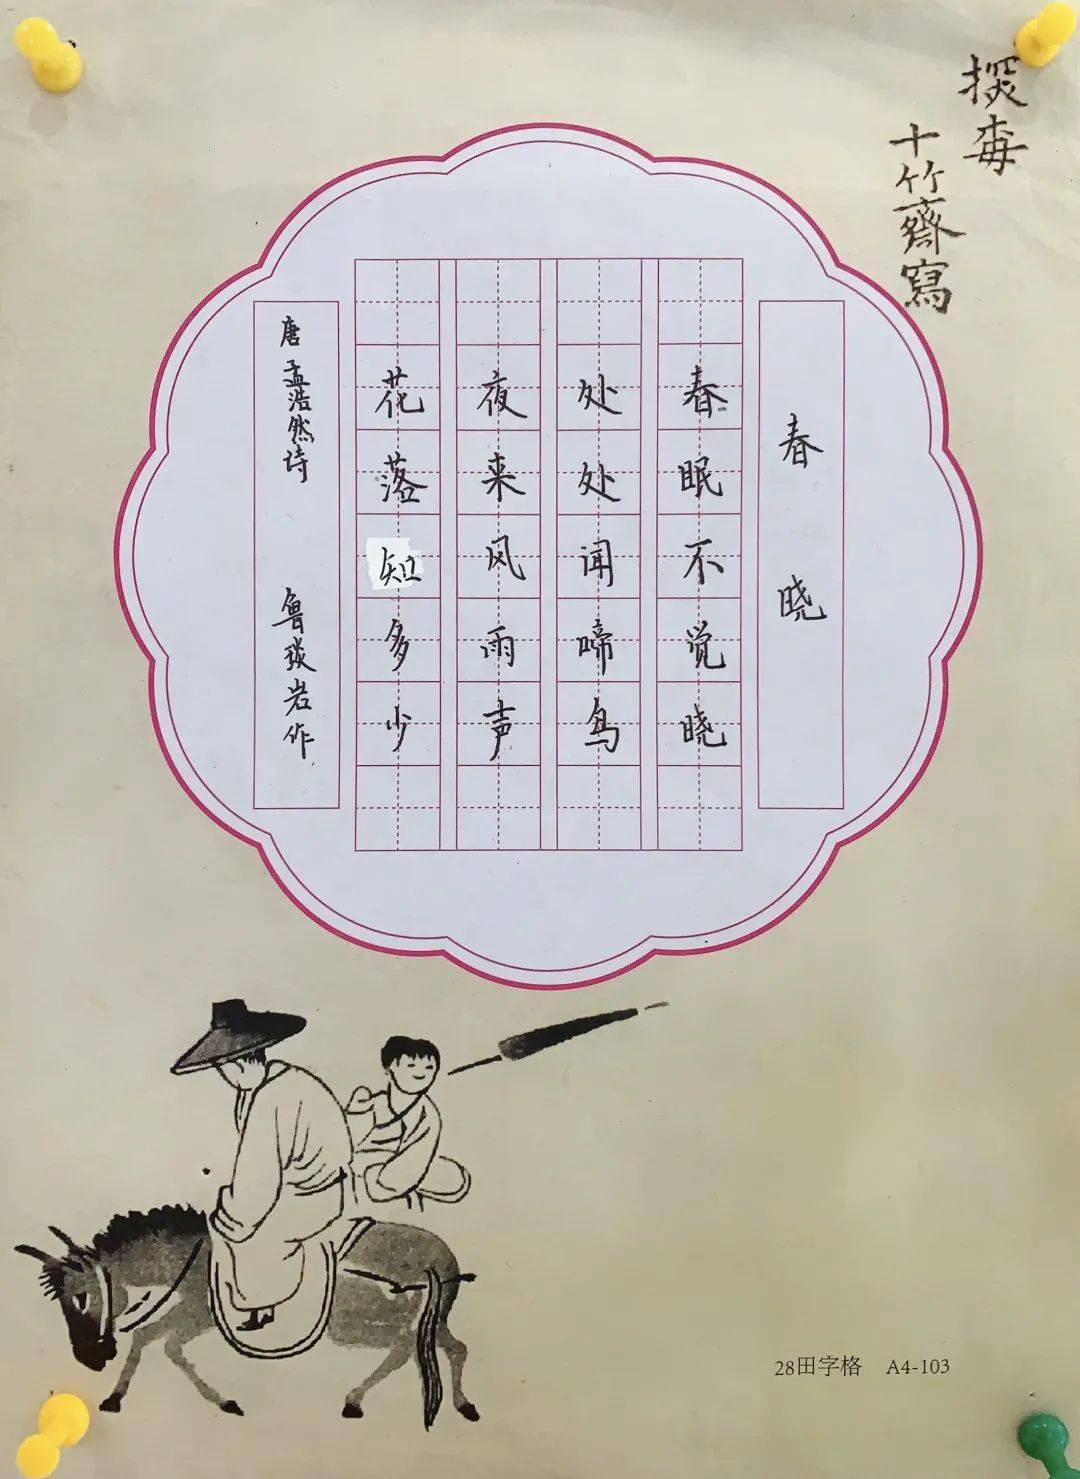 探梅
十竹齋寫
春晓
春眠不觉晓
处处闻啼鸟
夜来风雨声
花落知多少
唐 孟浩然诗 鲁琰岩作
28田字格 A4-103